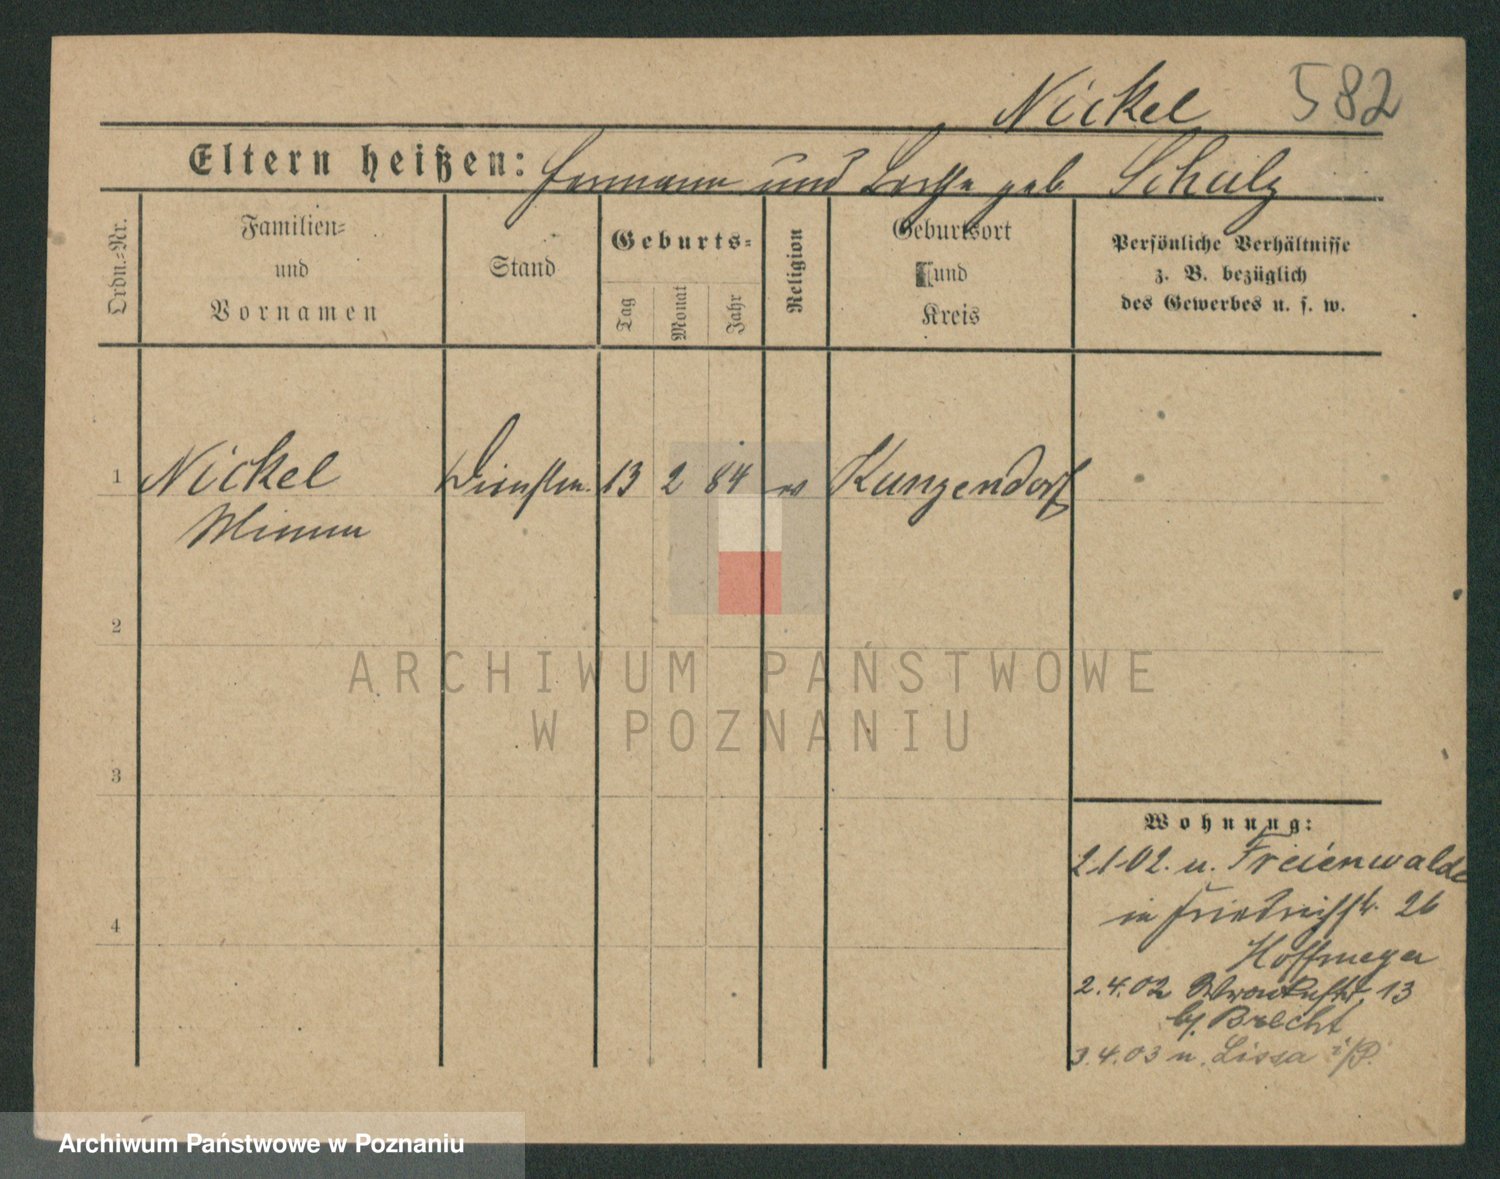 Nickel 582
Eltern heißen: Hermann und geb. Schulz
Ordn.=Nr.
Familien=
und
Vornamen
Stand
Geburts=
Tag
Monat
Jahr
Religion
Geburtsort
und
Kreis
Persönliche Verhältnisse
z. B. bezüglich
des Gewerbes u. s. w.
1 Nickel Dienstm. 13 2 84 ev Kunzendorf
Minna
2
3
4
Wohnung:
2.1.02. u. Freienwalde
in Friedrichstr. 26
Hoffmeyer
2.4.02 13
bj. Brecht
3.4.03 n. Lissa i/P.
ARCHIWUM PAŃSTWOWE
W POZNANIU
Archiwum Państwowe w Poznaniu